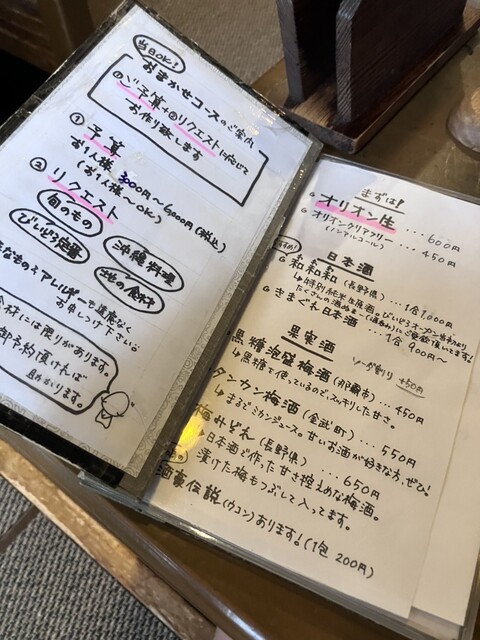 当日OK!
おまかせコースのご案内
◎ご予算+◎リクエストに応じて
お作り致します
① 予算
お1人様 3000円〜6000円(税込)
(お1人様〜OK)
② リクエスト
旬のもの
沖縄料理
びいどろ定番
地の食材
なものやアレルギーも遠慮なく
お申しつけ下さい。
食材には限りがあります。
御予約頂ければ
助かります。
まずは!
オリオン生 ... 600円
オリオンクリアフリー ... 450円
(ノンアルコール)
日本酒
和和和(長野県)...1合1000円
きまぐれ日本酒 ... 1合 900円〜
果実酒
ソーダ割り +50円
黒糖泡盛梅酒(那覇市)... 450円
↳黒糖を使っているのに、スッキリした甘さ。
タンカン梅酒(金武町)... 550円
↳まるでミカンジュース。甘いお酒が好きな方、ぜひ!
梅みどれ(長野県)... 650円
↳日本酒で作った甘さ控えめな梅酒。
漬けた梅もつぶして入ってます。
酒豪伝説(ウコン)あります!(1包 200円)